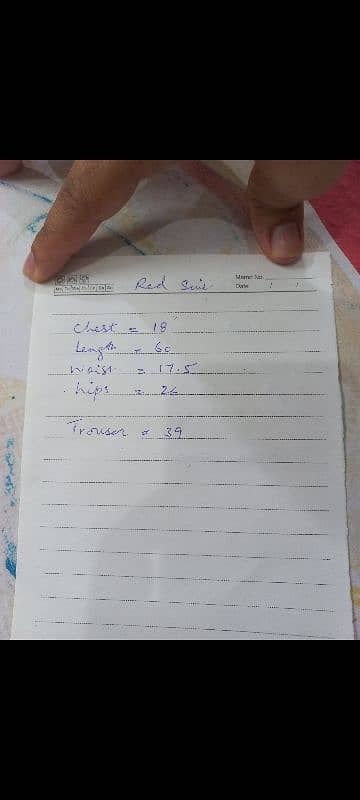 Memo No.
Mo Tu We Th Fr Sa Su
Date / /
Red Suit
Chest = 18
Length = 60
Waist = 17.5
hips = 26
Trouser = 39